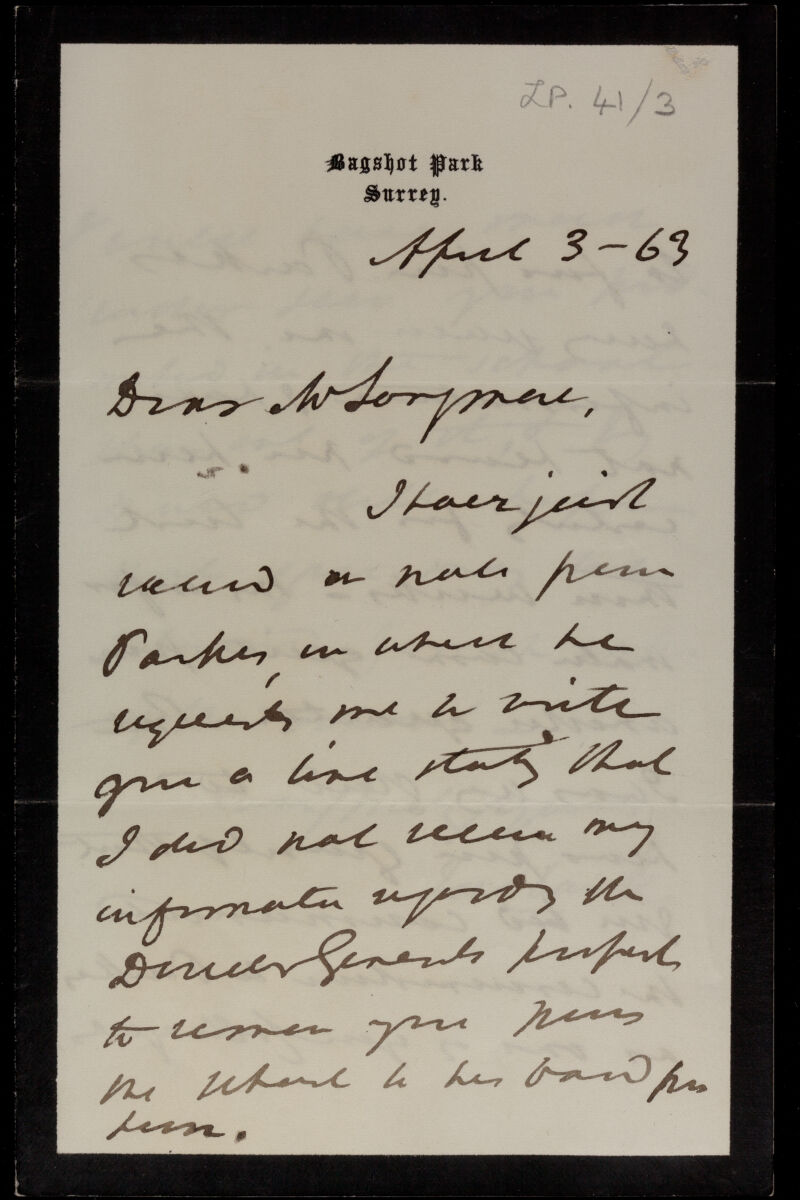 LP. 41/3
Bagshot Park
Surrey.
April 3-63
Dear Mr Longmore,
I have just
received a note from
Parkes, in which he
requests me to write
you a line stating that
I did not receive my
information regarding the
Director Generals proposals
to remove you from
the School to his Board from
him.